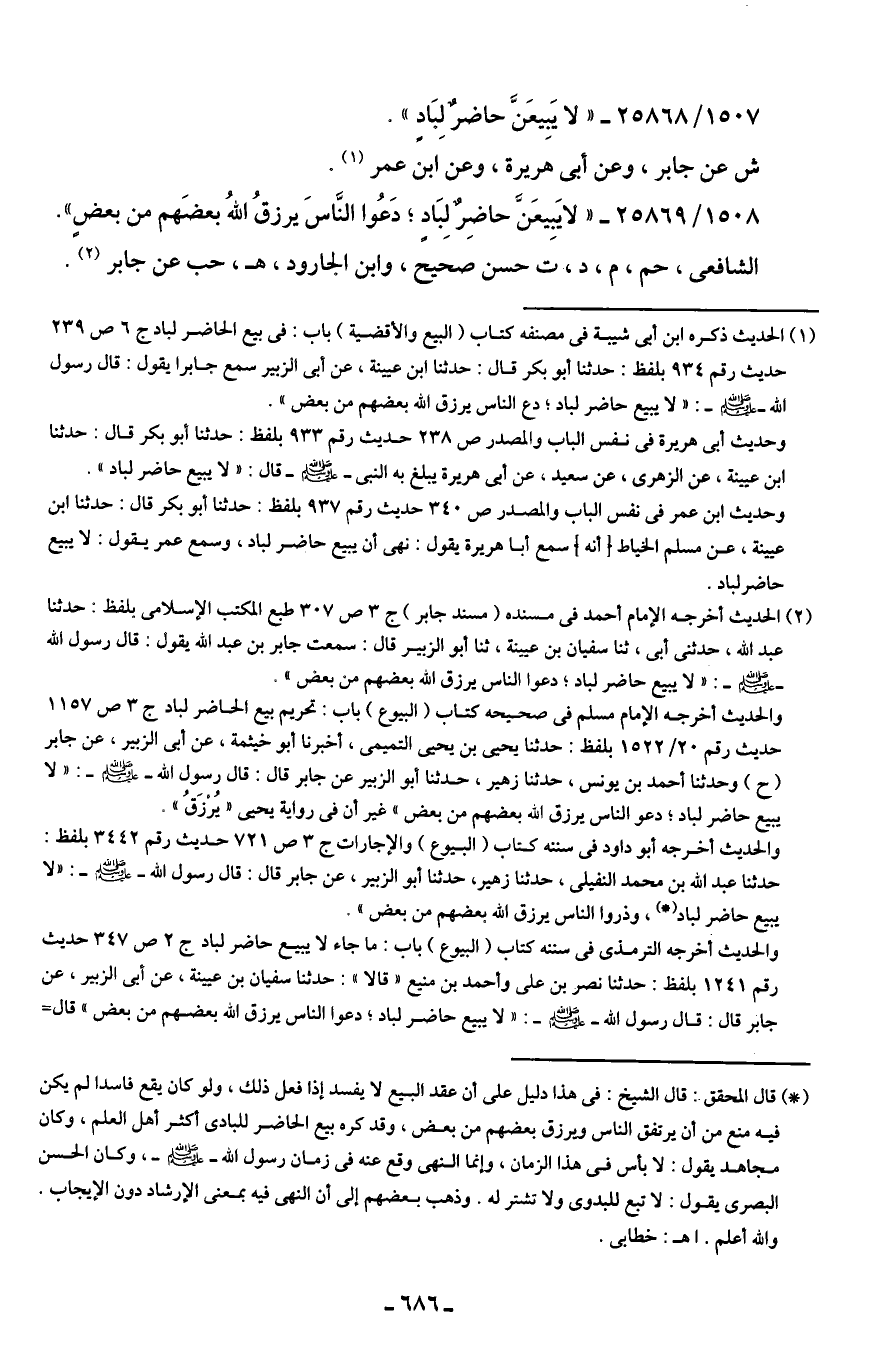 ٢٥٨٦٨/١٥٠٧ ـ « لا يَبِيعَنَّ حاضرٌ لِبَادٍ » .
ش عن جابر ، وعن أبى هريرة ، وعن ابن عمر (١) .
٢٥٨٦٩/١٥٠٨ ـ « لايَبِيعَنَّ حاضِرٌ لِبَادٍ ؛ دَعُوا النَّاسَ يرزقُ اللهُ بعضَهم من بعضٍ».
الشافعى ، حم ، م ، د ، ت حسن صحيح ، وابن الجارود ، هـ ، حب عن جابر (٢) .
(١) الحديث ذكره ابن أبى شيبة فى مصنفه كتاب ( البيع والأقضية ) باب : فى بيع الحاضر لباد ج ٦ ص ٢٣٩
حديث رقم ٩٣٤ بلفظ : حدثنا أبو بكر قال : حدثنا ابن عيينة ، عن أبى الزبير سمع جابرا يقول : قال رسول
الله ـ ﷺ ـ : « لا يبيع حاضر لباد ؛ دع الناس يرزق الله بعضهم من بعض » .
وحديث أبى هريرة فى نفس الباب والمصدر ص ٢٣٨ حديث رقم ٩٣٣ بلفظ : حدثنا أبو بكر قال : حدثنا
ابن عيينة ، عن الزهرى ، عن سعيد ، عن أبى هريرة يبلغ به النبى ـ ﷺ ـ قال : « لا يبيع حاضر لباد » .
وحديث ابن عمر فى نفس الباب والمصدر ص ٣٤٠ حديث رقم ٩٣٧ بلفظ : حدثنا أبو بكر قال : حدثنا ابن
عيينة ، عن مسلم الخياط { أنه } سمع أبا هريرة يقول : نهى أن يبيع حاضر لباد ، وسمع عمر يقول : لا يبيع
حاضر لباد .
(٢) الحديث أخرجه الإمام أحمد فى مسنده ( مسند جابر ) ج ٣ ص ٣٠٧ طبع المكتب الإسلامى بلفظ : حدثنا
عبد الله ، حدثنى أبى ، ثنا سفيان بن عيينة ، ثنا أبو الزبير قال : سمعت جابر بن عبد الله يقول : قال رسول الله
ـ ﷺ ـ : « لا يبيع حاضر لباد ؛ دعوا الناس يرزق الله بعضهم من بعض » .
والحديث أخرجه الإمام مسلم فى صحيحه كتاب ( البيوع ) باب : تحريم بيع الحاضر لباد ج ٣ ص ١١٥٧
حديث رقم ١٥٢٢/٢٠ بلفظ : حدثنا يحيى بن يحيى التميمى ، أخبرنا أبو خيثمة ، عن أبى الزبير ، عن جابر
(ح ) وحدثنا أحمد بن يونس ، حدثنا زهير ، حدثنا أبو الزبير عن جابر قال : قال رسول الله ـ ﷺ ـ : « لا
يبيع حاضر لباد ؛ دعو الناس يرزق الله بعضهم من بعض » غير أن فى رواية يحيى « يُرْزَقُ » .
والحديث أخرجه أبو داود فى سننه كتاب ( البيوع ) والإجارات ج ٣ ص ٧٢١ حديث رقم ٣٤٤٢ بلفظ :
حدثنا عبد الله بن محمد النفيلى ، حدثنا زهير، حدثنا أبو الزبير ، عن جابر قال : قال رسول الله ـ ﷺ ـ : «لا
يبيع حاضر لباد(*) ، وذروا الناس يرزق الله بعضهم من بعض » .
والحديث أخرجه الترمذى فى سننه كتاب ( البيوع ) باب : ما جاء لا يبيع حاضر لباد ج ٢ ص ٣٤٧ حديث
رقم ١٢٤١ بلفظ : حدثنا نصر بن على وأحمد بن منيع « قالا » : حدثنا سفيان بن عيينة ، عن أبى الزبير ، عن
جابر قال : قال رسول الله ـ ﷺ ـ : « لا يبيع حاضر لباد ؛ دعوا الناس يرزق الله بعضهم من بعض » قال=
(*) قال المحقق : قال الشيخ : فى هذا دليل على أن عقد البيع لا يفسد إذا فعل ذلك ، ولو كان يقع فاسدا لم يكن
فيه منع من أن يرتفق الناس ويرزق بعضهم من بعض ، وقد كره بيع الحاضر للبادى أكثر أهل العلم ، وكان
مجاهد يقول : لا بأس فى هذا الزمان ، وإنما النهى وقع عنه فى زمان رسول الله ـ ﷺ ـ ، وكان الحسن
البصرى يقول : لا تبع للبدوى ولا تشتر له . وذهب بعضهم إلى أن النهى فيه بمعنى الإرشاد دون الإيجاب .
والله أعلم . اهـ : خطابى .
ـ ٦٨٦ ـ